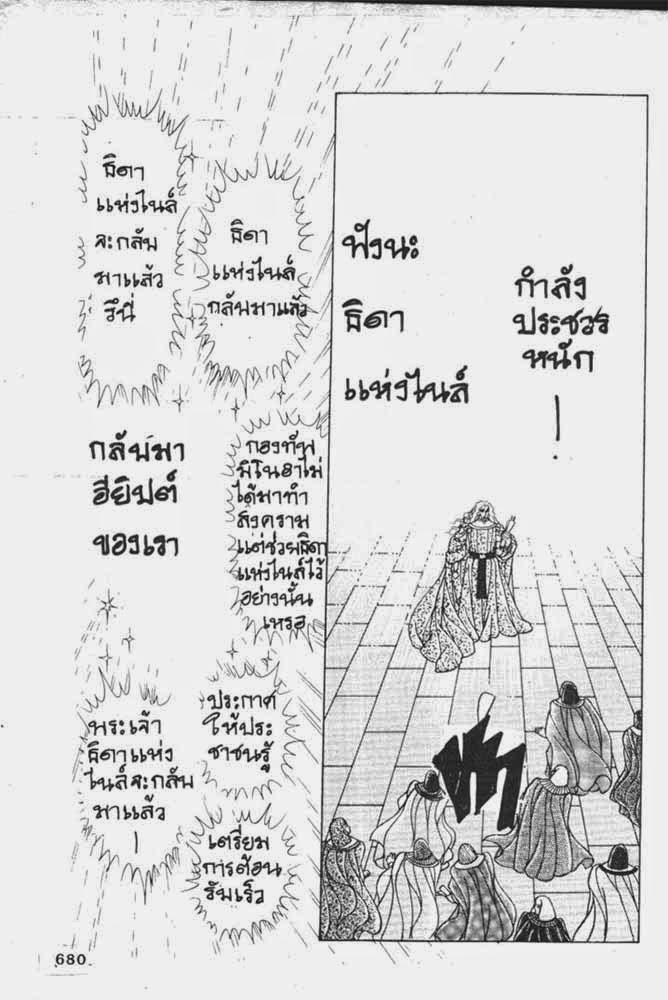 กำลัง
ประชวร
หนัก
!
ฟังนะ
ธิดา
แห่งไนล์
ธิดา
แห่งไนล์
กลับมาแล้ว
ธิดา
แห่งไนล์
จะกลับ
มาแล้ว
รึนี่
กองทัพ
มิโนอาไม่
ได้มาทำ
สงคราม
แต่ช่วยธิดา
แห่งไนล์ไว้
อย่างนั้น
เหรอ
กลับมา
อียิปต์
ของเรา
ประกาศ
ให้ประ
ชาชนรู้
เตรียม
การต้อน
รับเร็ว
พระเจ้า
ธิดาแห่ง
ไนล์จะกลับ
มาแล้ว
!
680